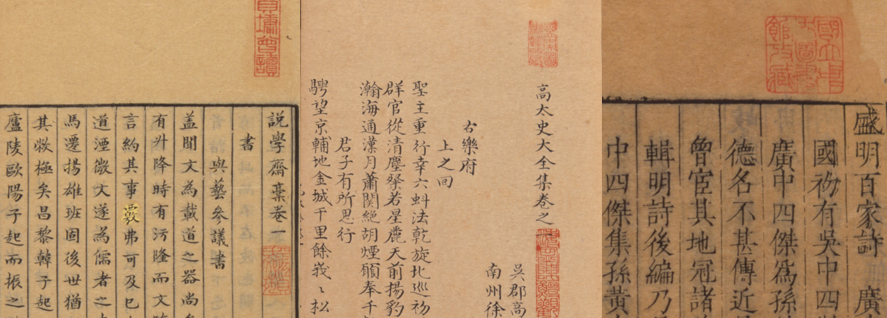 説學齋藁卷一
書
與藝參議書
蓋聞文為載道之器尚
有升降時有污隆而文
言約其事覈弗可及已
道湮微文遂為儒者之
馬遷揚雄班固後世猶
其弊極矣昌黎韓子起
廬陵歐陽子起而振之
高太史大全集卷之
吳郡高
南州徐
古樂府
上之回
聖主重行幸六虯法乾旋北巡初
群官從清塵粲若星麗天前揚豹
瀚海通漢月蕭關絕胡煙願奉千
君子有所思行
騁望京輔地金城千里餘峩〻松
盛明百家詩
廣
國初有吳中四
廣中四傑為孫
德名不甚傳近
曾宦其地冠諸
輯明詩後編乃
中四傑集孫黃